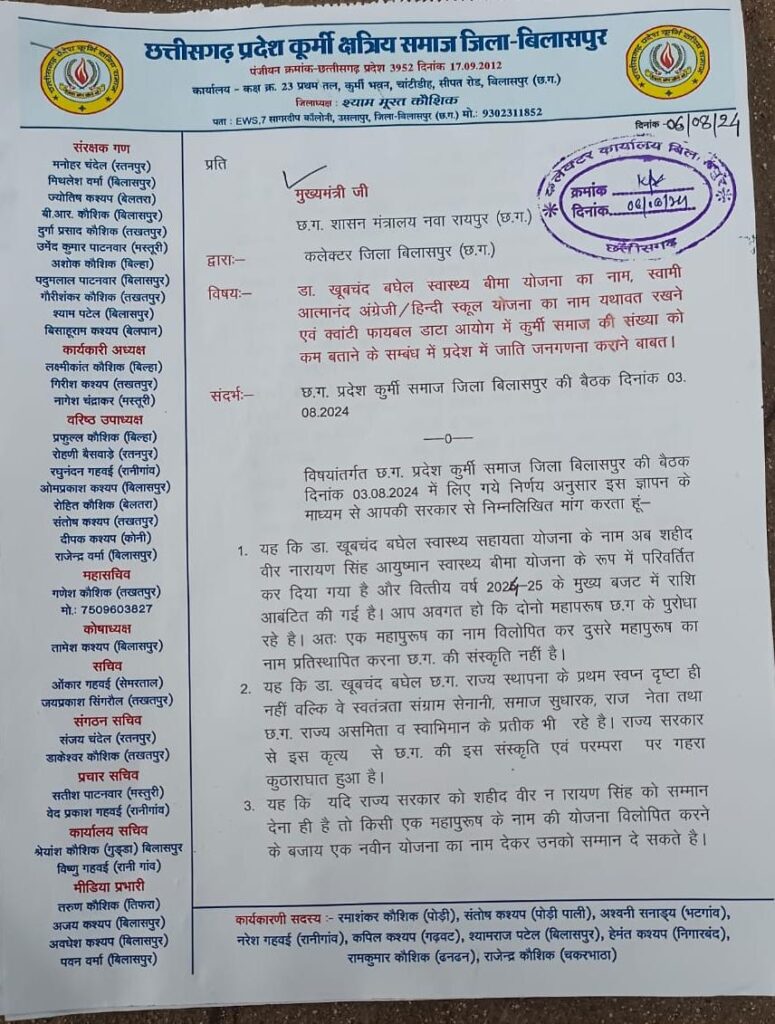 छत्तीसगढ़ प्रदेश कूर्मी क्षत्रिय समाज जिला-बिलासपुर
पंजीयन क्रमांक-छत्तीसगढ़ प्रदेश 3952 दिनांक 17.09.2012
कार्यालय - कक्ष क्र. 23 प्रथम तल, कुर्मी भवन, चांटीडीह, सीपत रोड, बिलासपुर (छ.ग.)
जिलाध्यक्ष : श्याम मूरत कौशिक
पता : EWS,7 सागरदीप कॉलोनी, उसलापुर, जिला-बिलासपुर (छ.ग.) मो.: 9302311852
दिनांक -06/08/24
संरक्षक गण
मनोहर चंदेल (रतनपुर)
मिथलेश वर्मा (बिलासपुर)
ज्योतिष कश्यप (बेलतरा)
बी.आर. कौशिक (बिलासपुर)
दुर्गा प्रसाद कौशिक (तखतपुर)
उमेंद कुमार पाटनवार (मस्तूरी)
अशोक कौशिक (बिल्हा)
पदुमलाल पाटनवार (बिलासपुर)
गौरीशंकर कौशिक (तखतपुर)
श्याम पटेल (बिलासपुर)
बिसाहूराम कश्यप (बेलपान)
कार्यकारी अध्यक्ष
लक्ष्मीकांत कौशिक (बिल्हा)
गिरीश कश्यप (तखतपुर)
नागेश चंद्राकर (मस्तूरी)
वरिष्ठ उपाध्यक्ष
प्रफुल्ल कौशिक (बिल्हा)
रोहणी बैसवाड़े (रतनपुर)
रघुनंदन गहवई (रानीगांव)
ओमप्रकाश कश्यप (बिलासपुर)
रोहित कौशिक (बेलतरा)
संतोष कश्यप (तखतपुर)
दीपक कश्यप (कोनी)
राजेन्द्र वर्मा (बिलासपुर)
महासचिव
गणेश कौशिक (तखतपुर)
मो.: 7509603827
कोषाध्यक्ष
तामेश कश्यप (बिलासपुर)
सचिव
ओंकार गहवई (सेमरताल)
जयप्रकाश सिंगरौल (तखतपुर)
संगठन सचिव
संजय चंदेल (रतनपुर)
डाकेश्वर कौशिक (तखतपुर)
प्रचार सचिव
सतीश पाटनवार (मस्तुरी)
वेद प्रकाश गहवई (रानीगांव)
कार्यालय सचिव
श्रेयांश कौशिक (गुड्डा) बिलासपुर
विष्णु गहवई (रानी गांव)
मीडिया प्रभारी
तरुण कौशिक (तिफरा)
अजय कश्यप (बिलासपुर)
अवधेश कश्यप (बिलासपुर)
पवन वर्मा (बिलासपुर)
प्रति
मुख्यमंत्री जी
छ.ग. शासन मंत्रालय नवा रायपुर (छ.ग.)
द्वाराः– कलेक्टर जिला बिलासपुर (छ.ग.)
कलेक्टर कार्यालय
क्रमांक
दिनांक 06/08/24
छत्तीसगढ़
विषयः– डा. खूबचंद बघेल स्वास्थ्य बीमा योजना का नाम, स्वामी
आत्मानंद अंग्रेजी/हिन्दी स्कूल योजना का नाम यथावत रखने
एवं क्वांटी फायबल डाटा आयोग में कुर्मी समाज की संख्या को
कम बताने के सम्बंध में प्रदेश में जाति जनगणना कराने बाबत।
संदर्भः– छ.ग. प्रदेश कुर्मी समाज जिला बिलासपुर की बैठक दिनांक 03.
08.2024
—0—
विषयांतर्गत छ.ग. प्रदेश कुर्मी समाज जिला बिलासपुर की बैठक
दिनांक 03.08.2024 में लिए गये निर्णय अनुसार इस ज्ञापन के
माध्यम से आपकी सरकार से निम्नलिखित मांग करता हूं–
1. यह कि डा. खूबचंद बघेल स्वास्थ्य सहायता योजना के नाम अब शहीद
वीर नारायण सिंह आयुष्मान स्वास्थ्य बीमा योजना के रूप में परिवर्तित
कर दिया गया है और वित्तीय वर्ष 2024-25 के मुख्य बजट में राशि
आबंटित की गई है। आप अवगत हो कि दोनो महापरूष छ.ग के पुरोधा
रहे है। अतः एक महापुरूष का नाम विलोपित कर दुसरे महापुरूष का
नाम प्रतिस्थापित करना छ.ग. की संस्कृति नहीं है।
2. यह कि डा. खूबचंद बघेल छ.ग. राज्य स्थापना के प्रथम स्वप्न दृष्टा ही
नहीं वल्कि वे स्वतंत्रता संग्राम सेनानी, समाज सुधारक, राज नेता तथा
छ.ग. राज्य असमिता व स्वाभिमान के प्रतीक भी रहे है। राज्य सरकार
से इस कृत्य से छ.ग. की इस संस्कृति एवं परम्परा पर गहरा
कुठाराघात हुआ है।
3. यह कि यदि राज्य सरकार को शहीद वीर न ारायण सिंह को सम्मान
देना ही है तो किसी एक महापुरूष के नाम की योजना विलोपित करने
के बजाय एक नवीन योजना का नाम देकर उनको सम्मान दे सकते है।
कार्यकारणी सदस्य :- रमाशंकर कौशिक (पोड़ी), संतोष कश्यप (पोड़ी पाली), अश्वनी सनाड्य (भटगांव),
नरेश गहवई (रानीगांव), कपिल कश्यप (गढ़वट), श्यामराज पटेल (बिलासपुर), हेमंत कश्यप (निगारबंद),
रामकुमार कौशिक (ढनढन), राजेन्द्र कौशिक (चकरभाठा)